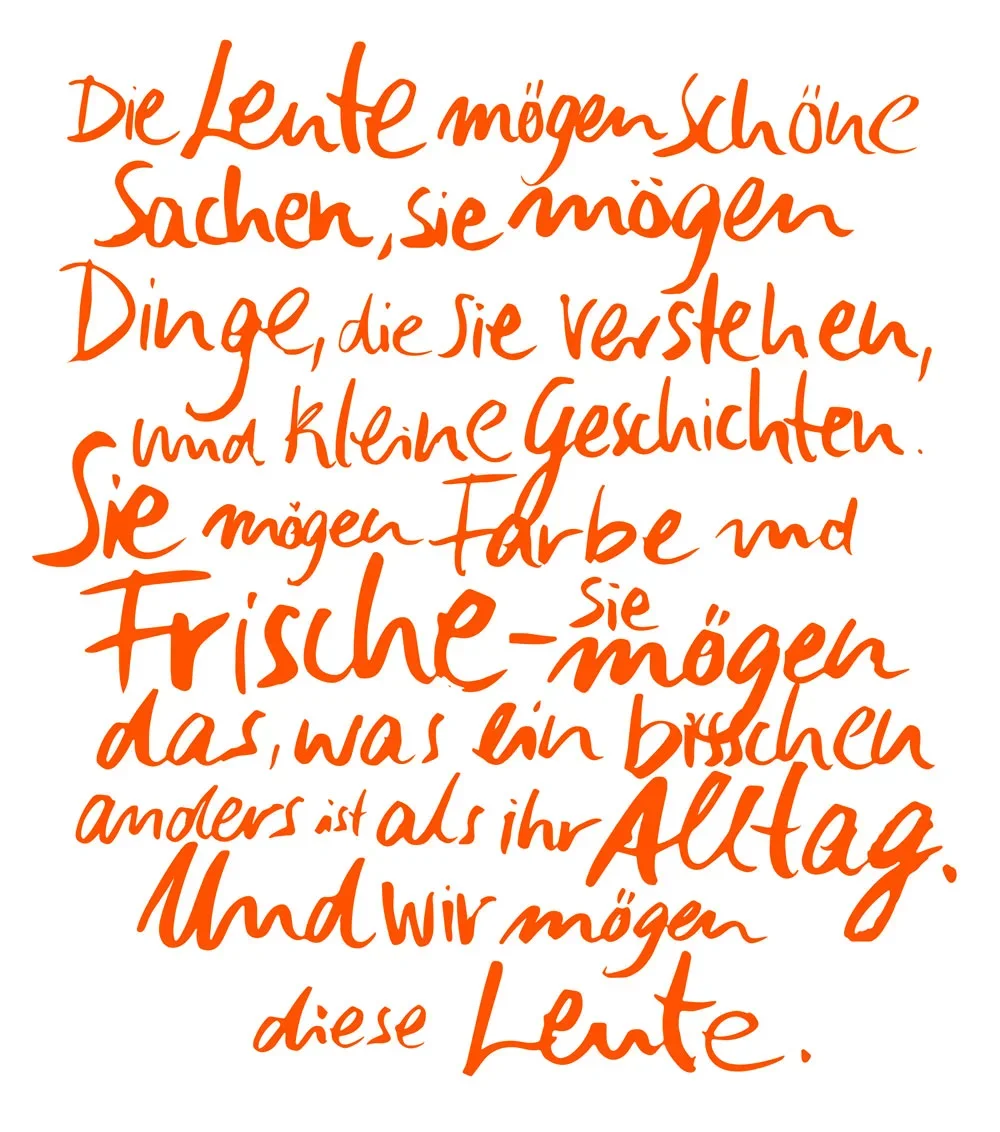 Die Leute mögen schöne
Sachen, sie mögen
Dinge, die sie verstehen,
und kleine Geschichten.
Sie mögen Farbe und
Frische - sie mögen
das, was ein bisschen
anders ist als ihr Alltag.
Und wir mögen
diese Leute.